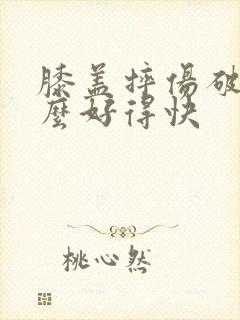 膝盖摔傷破
麼好得快
桃心然